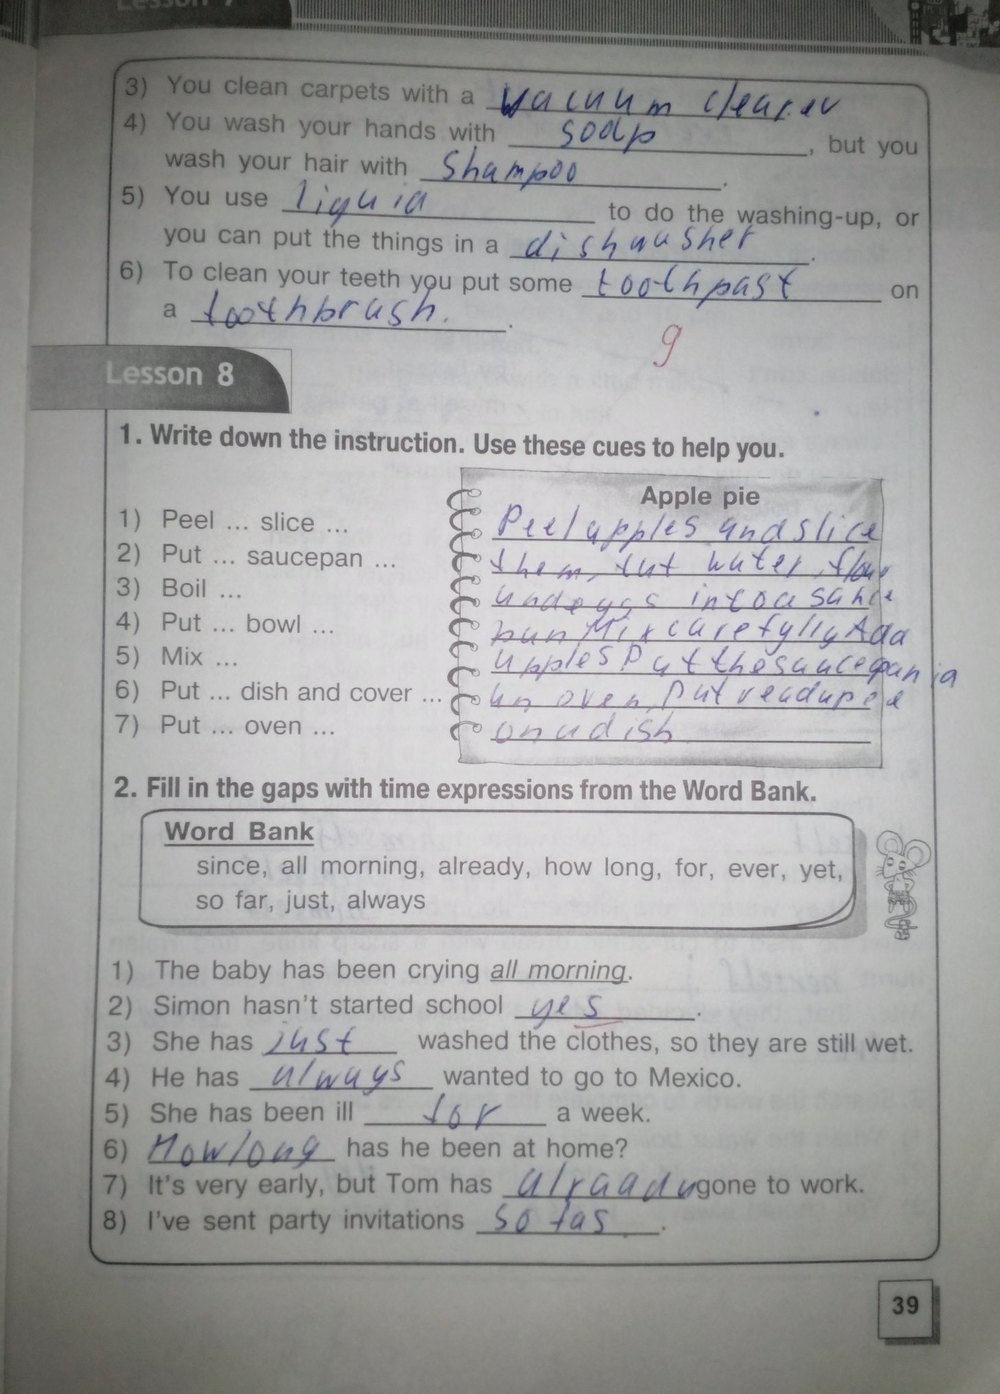 Lesson 7
3) You clean carpets with a vacuum cleaner
4) You wash your hands with soap, but you
wash your hair with Shampoo.
5) You use liquid to do the washing-up, or
you can put the things in a dishwasher.
6) To clean your teeth you put some toothpast on
a toothbrush.
9
Lesson 8
1. Write down the instruction. Use these cues to help you.
Apple pie
1) Peel ... slice ...
2) Put ... saucepan ...
3) Boil ...
4) Put ... bowl ...
5) Mix ...
6) Put ... dish and cover ...
7) Put ... oven ...
Peel apples and slice
them, put water, flour
and eggs into a sauce
pan, Mix carefylly Add
apples Put the saucepan in
an oven, Put ready pie
on a dish
2. Fill in the gaps with time expressions from the Word Bank.
Word Bank
since, all morning, already, how long, for, ever, yet,
so far, just, always
1) The baby has been crying all morning.
2) Simon hasn't started school yes.
3) She has just washed the clothes, so they are still wet.
4) He has always wanted to go to Mexico.
5) She has been ill for a week.
6) How long has he been at home?
7) It's very early, but Tom has alraady gone to work.
8) I've sent party invitations so fas.
39